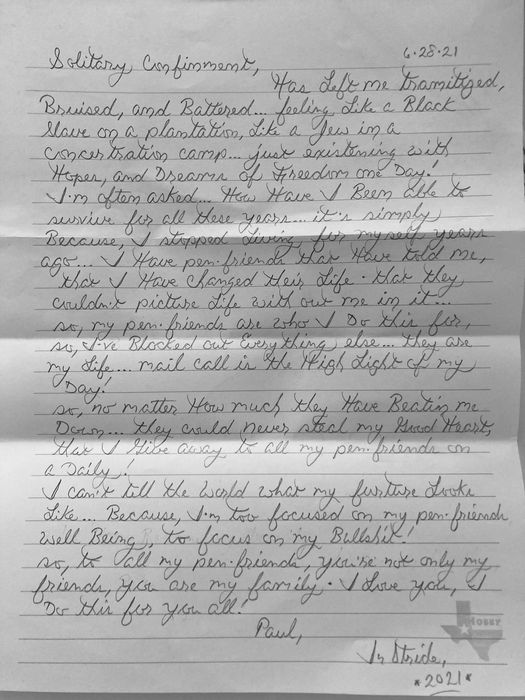 6·28·21
Solitary Confinment,
Has Left me Tramitized,
Bruised, and Battered... feeling Like a Black
slave on a plantation, Like a Jew in a
concertration camp... just existening with
Hopes, and Dreams of Freedom one Day!
I'm often asked... How Have I Been able to
survive for all these years... it's simply
Because, I stopped Living for myself years
ago... I Have pen·friends that Have told me,
that I Have changed their Life · that they
couldn't picture Life with out me in it...
so, my pen·friends are who I Do this for,
so, I've Blocked out Everything else... they are
my Life... mail call is the High Light of my
Day!
so, no matter How much they Have Beatin me
Down... they could never steal my Good Heart,
that I Give away to all my pen·friends on
a Daily!
I can't till the world what my furture Looks
Like... Because, I'm too focused on my pen·friends
well Being to focus on my Bullshit!
so, to all my pen·friends, you're not only my
friends, you are my family · I Love you, I
Do this for you all!
Paul,
In Stride,
*2021*